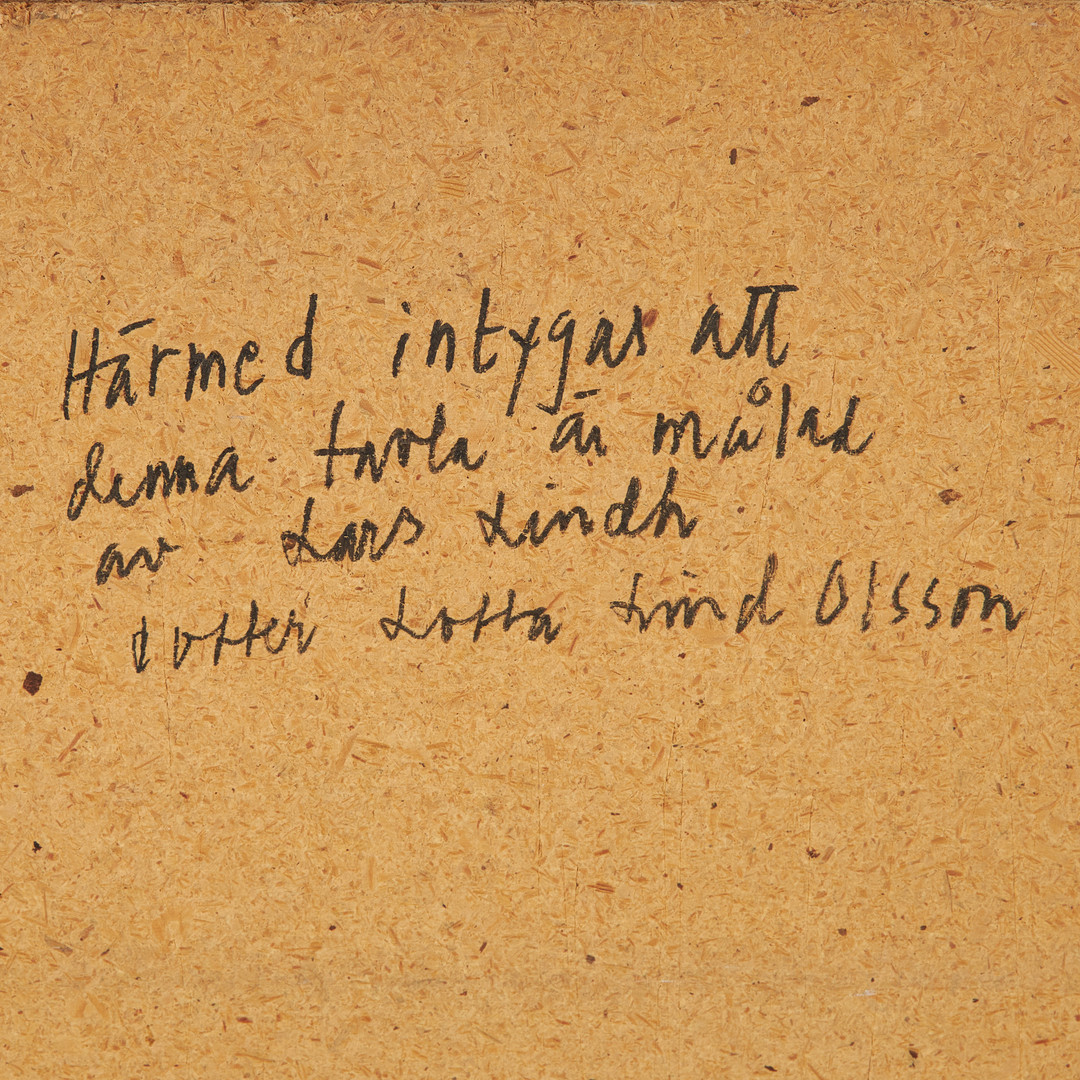 Härmed intygas att
denna tavla är målad
av Lars Lindh
dotter Lotta Lind Olsson